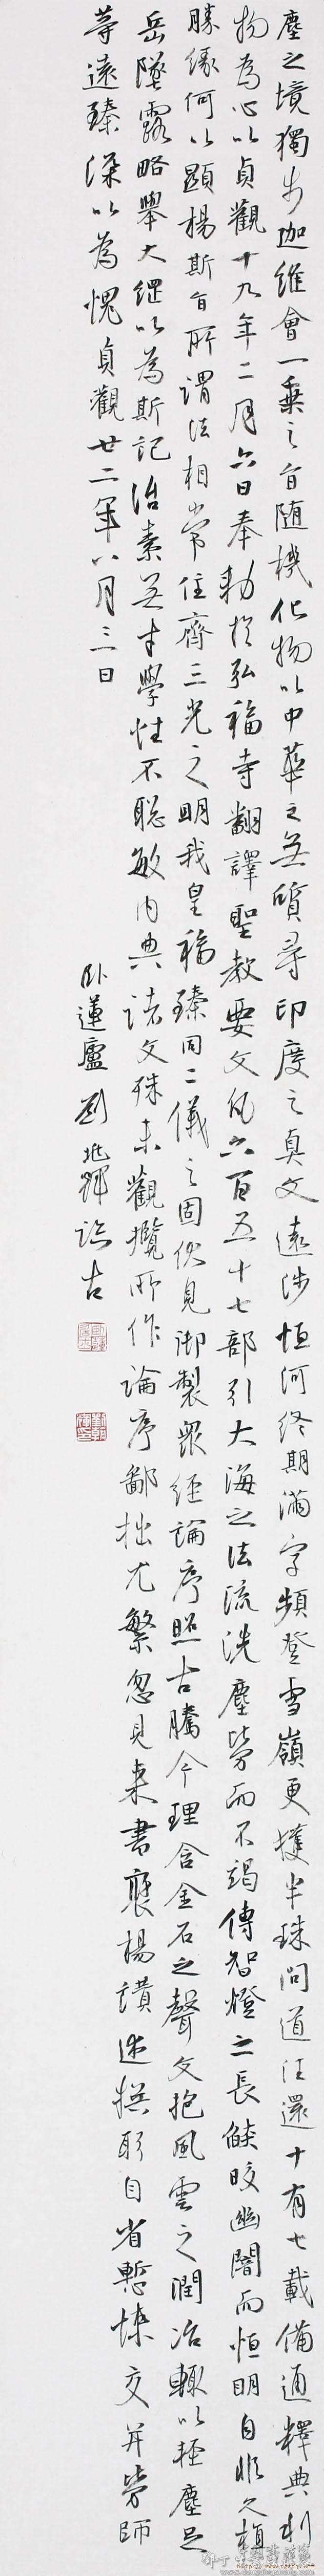 塵之境獨步迦維會一乘之旨隨機化物以中華之無質尋印度之真文遠涉恒河終期滿字頻登雪嶺更獲半珠問道往還十有七載備通釋典利
物為心以貞觀十九年二月六日奉勅於弘福寺翻譯聖教要文凡六百五十七部引大海之法流洗塵勞而不竭傳智燈之長焰皎幽闇而恒明自非久植
勝緣何以顯楊斯旨所謂法相常住齊三光之明我皇福臻同二儀之固伏見御製眾經論序照古騰今理含金石之聲文抱風雲之潤治輒以輕塵足
岳墜露略舉大綱以為斯記治素無才學性不聰敏內典諸文殊未觀攬所作論序鄙拙尤繁忽見來書褒楊讚述撫躬自省慙悚交并勞師
等遠臻深以為愧貞觀廿二年八月三日
臥蓮廬劉兆輝臨古